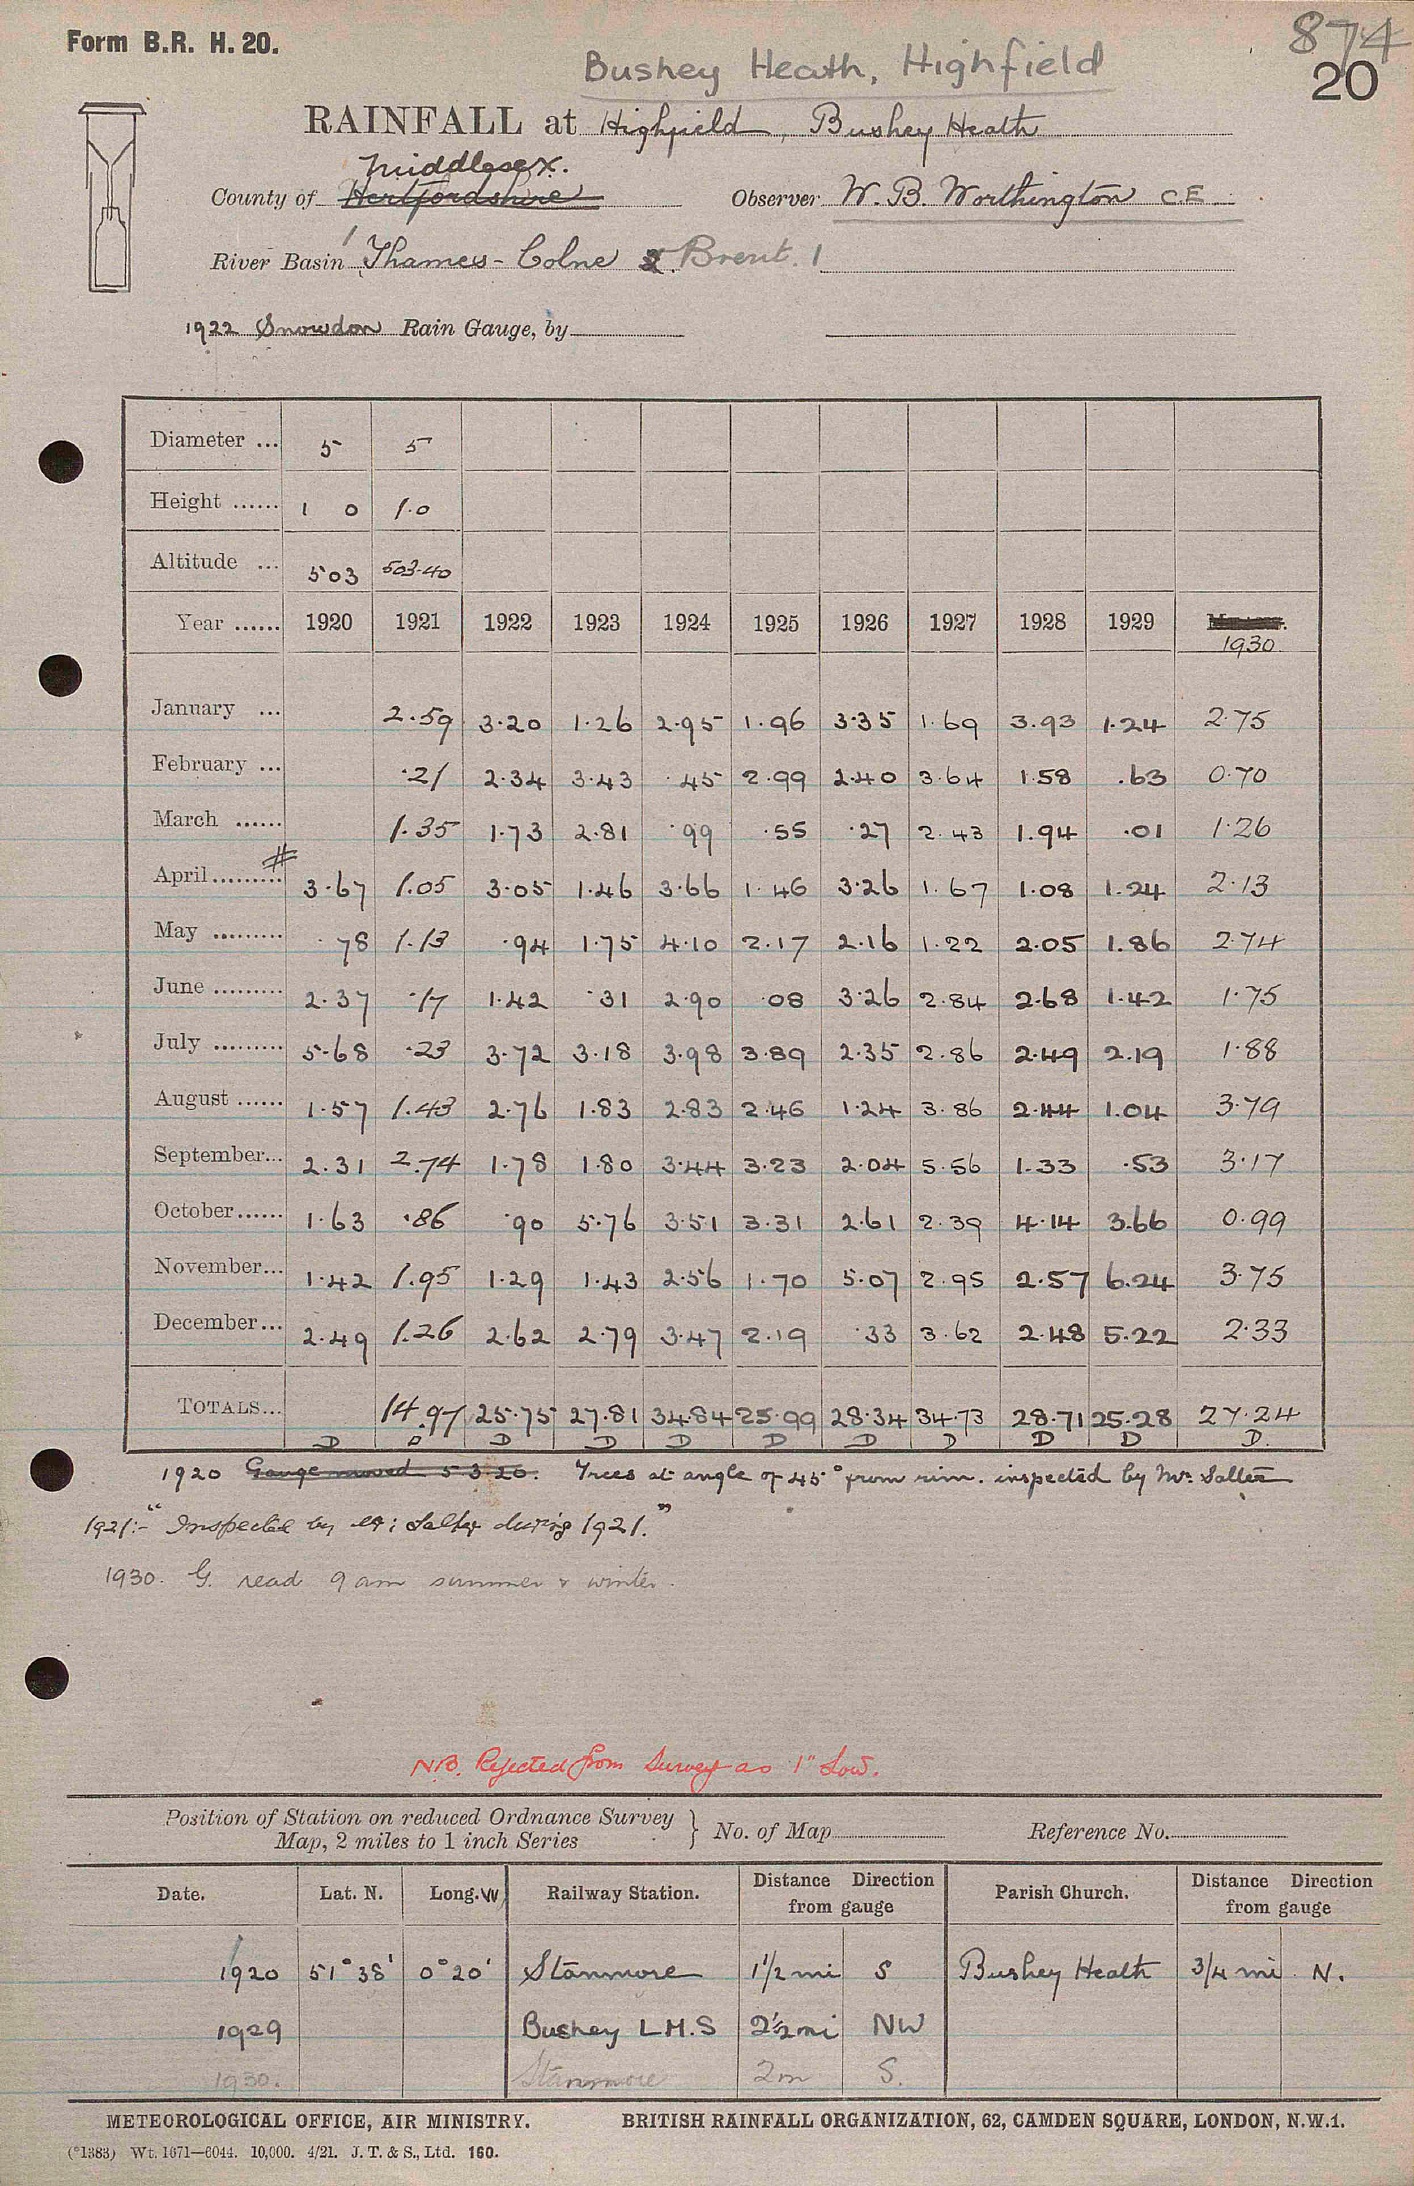 Form B.R. H. 20.
874
20
Bushey Heath, Highfield
RAINFALL at Highfield, Bushey Heath
Middlesex.
County of Hertfordshire Observer W. B. Worthington C.E.
River Basin Thames - Colne & Brent.
1922 Snowdon Rain Gauge, by
Diameter ... 5 5
Height ...... 1 0 1.0
Altitude ... 503 503.40
Year ...... 1920 1921 1922 1923 1924 1925 1926 1927 1928 1929
1930
January ... 2.59 3.20 1.26 2.95 1.96 3.35 1.69 3.93 1.24 2.75
February ... .21 2.34 3.43 .45 2.99 2.40 3.64 1.58 .63 0.70
March ...... 1.35 1.73 2.81 .99 .55 .27 2.43 1.94 .01 1.26
April......... # 3.67 1.05 3.05 1.46 3.66 1.46 3.26 1.67 1.08 1.24 2.13
May ......... .78 1.13 .94 1.75 4.10 2.17 2.16 1.22 2.05 1.86 2.74
June ......... 2.37 .17 1.42 .31 2.90 .08 3.26 2.84 2.68 1.42 1.75
July ......... 5.68 .23 3.72 3.18 3.98 3.89 2.35 2.86 2.49 2.19 1.88
August ...... 1.57 1.43 2.76 1.83 2.83 2.46 1.24 3.86 2.44 1.04 3.79
September... 2.31 2.74 1.78 1.80 3.44 3.23 2.04 5.56 1.33 .53 3.17
October...... 1.63 .86 .90 5.76 3.51 3.31 2.61 2.39 4.14 3.66 0.99
November... 1.42 1.95 1.29 1.43 2.56 1.70 5.07 2.95 2.57 6.24 3.75
December... 2.49 1.26 2.62 2.79 3.47 2.19 .33 3.62 2.48 5.22 2.33
TOTALS... 14.97 25.75 27.81 34.84 25.99 28.34 34.73 28.71 25.28 27.24
D D D D D D D D D D D.
1920 Gauge moved 5.3.20. Trees at angle of 45° from rim. inspected by Mr. Salter
1921:- "Inspected by Mr: Salter during 1921."
1930. G. read 9 am summer & winter.
NB. Rejected from Survey as 1" Low.
Position of Station on reduced Ordnance Survey
Map, 2 miles to 1 inch Series } No. of Map Reference No.
Date. Lat. N. Long. W Railway Station. Distance Direction from gauge Parish Church. Distance Direction from gauge
1920 51°38' 0°20' Stanmore 1 1/2 mi S Bushey Heath 3/4 mi N.
1929 Bushey L.M.S 2 1/2 mi NW
1930. Stanmore 2m S.
METEOROLOGICAL OFFICE, AIR MINISTRY. BRITISH RAINFALL ORGANIZATION, 62, CAMDEN SQUARE, LONDON, N.W.1.
(*1383) Wt. 1671—6044. 10,000. 4/21. J. T. & S., Ltd. 160.